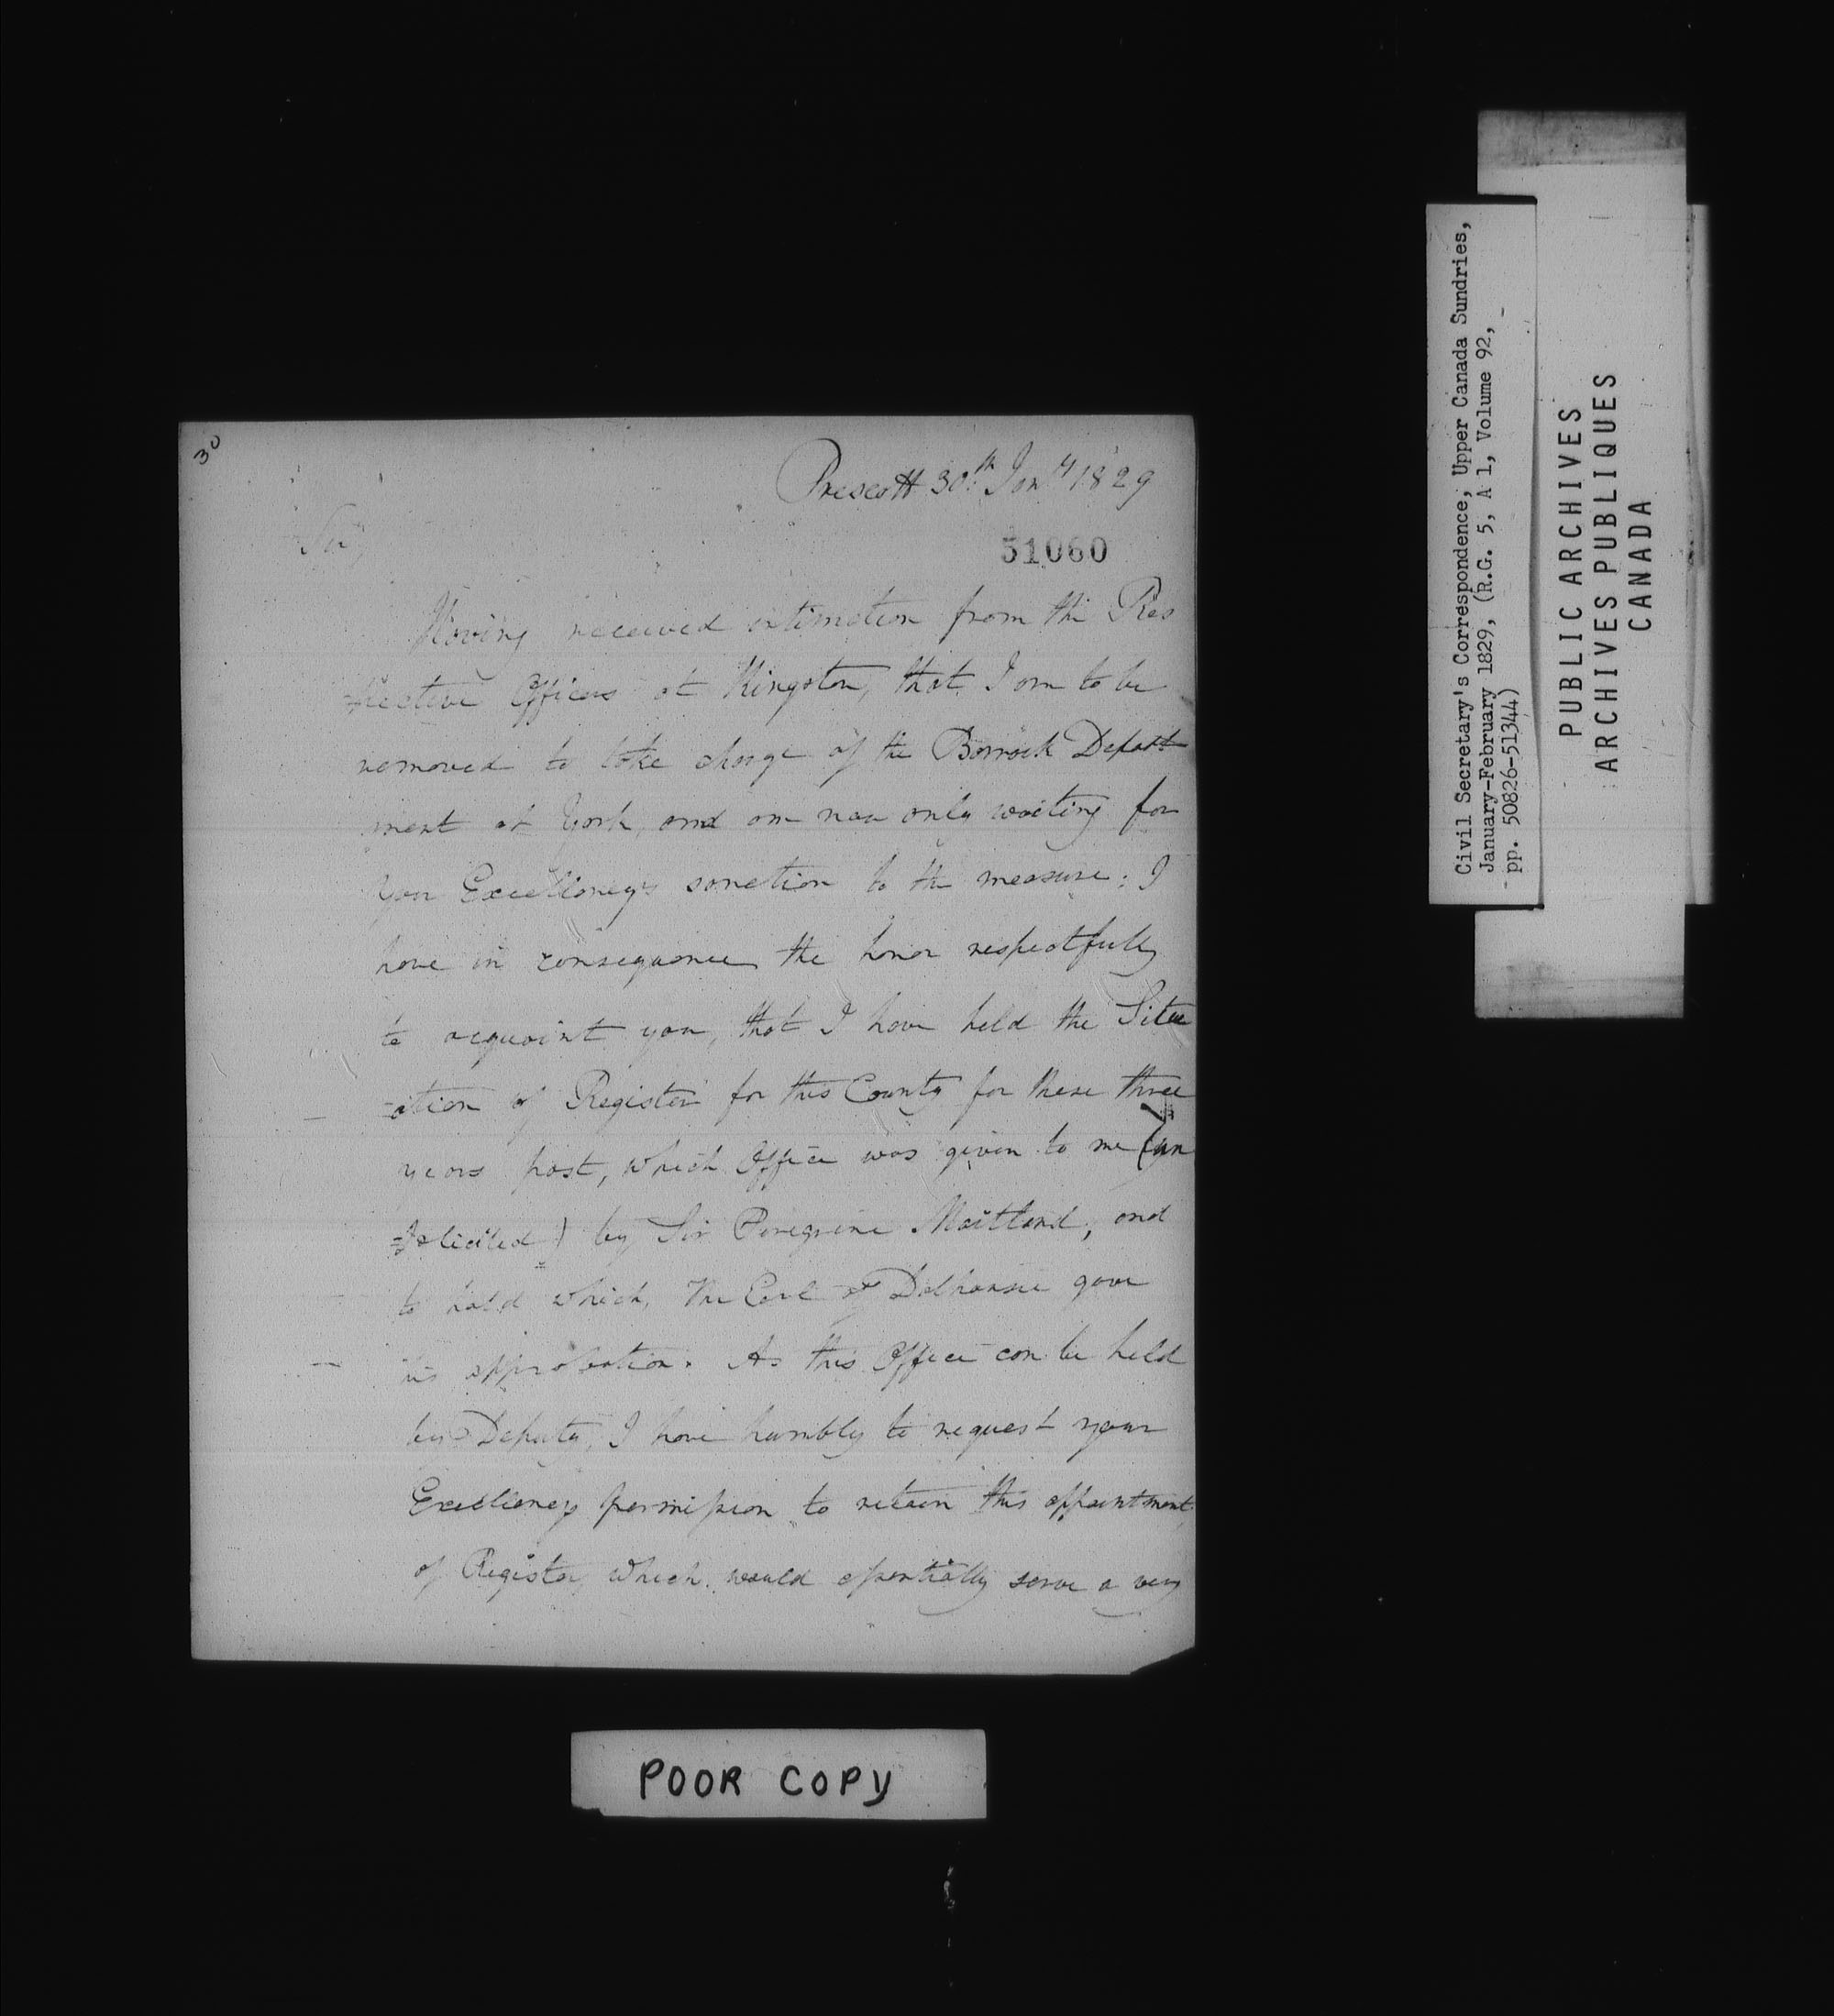 30
Prescott 30th Jany 1829
Sir,
51060
Having received intimation from the Res
=pective Officers at Kingston, that I am to be
removed to take charge of the Barrack Depart
ment at York, and am now only waiting for
your Excellency's sanction to the measure: I
have in consequence the honor respectfully
to acquaint you, that I have held the Situ
-ation of Register for this County for these three
years past, which Office was given to me (un
=solicited) by Sir Peregrine Maitland, and
to hold which, The Earl of Dalhousie gave
his approbation. As this Office can be held
by Deputy, I have humbly to request your
Excellency's permission to retain this appointment
of Register, which would essentially serve a very
POOR COPY
Civil Secretary's Correspondence, Upper Canada Sundries,
January-February 1829, (R.G. 5, A 1, Volume 92,
pp. 50826-51344)
PUBLIC ARCHIVES
ARCHIVES PUBLIQUES
CANADA